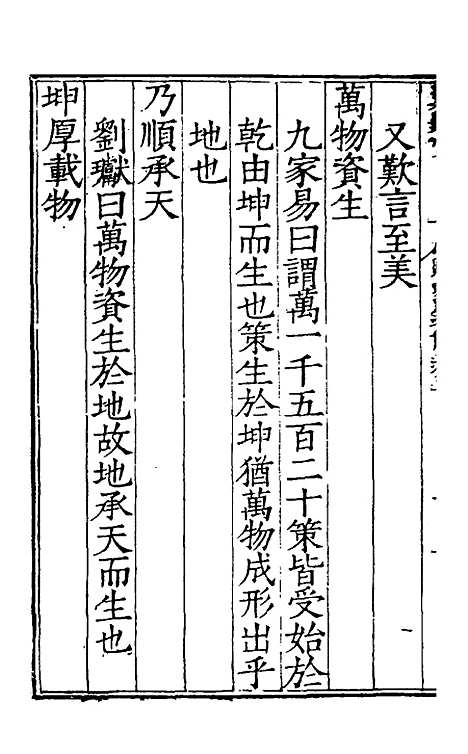 又歎言至美
萬物資生
九家易曰謂萬一千五百二十策皆受始於
乾由坤而生也策生於坤猶萬物成形出乎
地也
乃順承天
劉瓛曰萬物資生於地故地承天而生也
坤厚載物